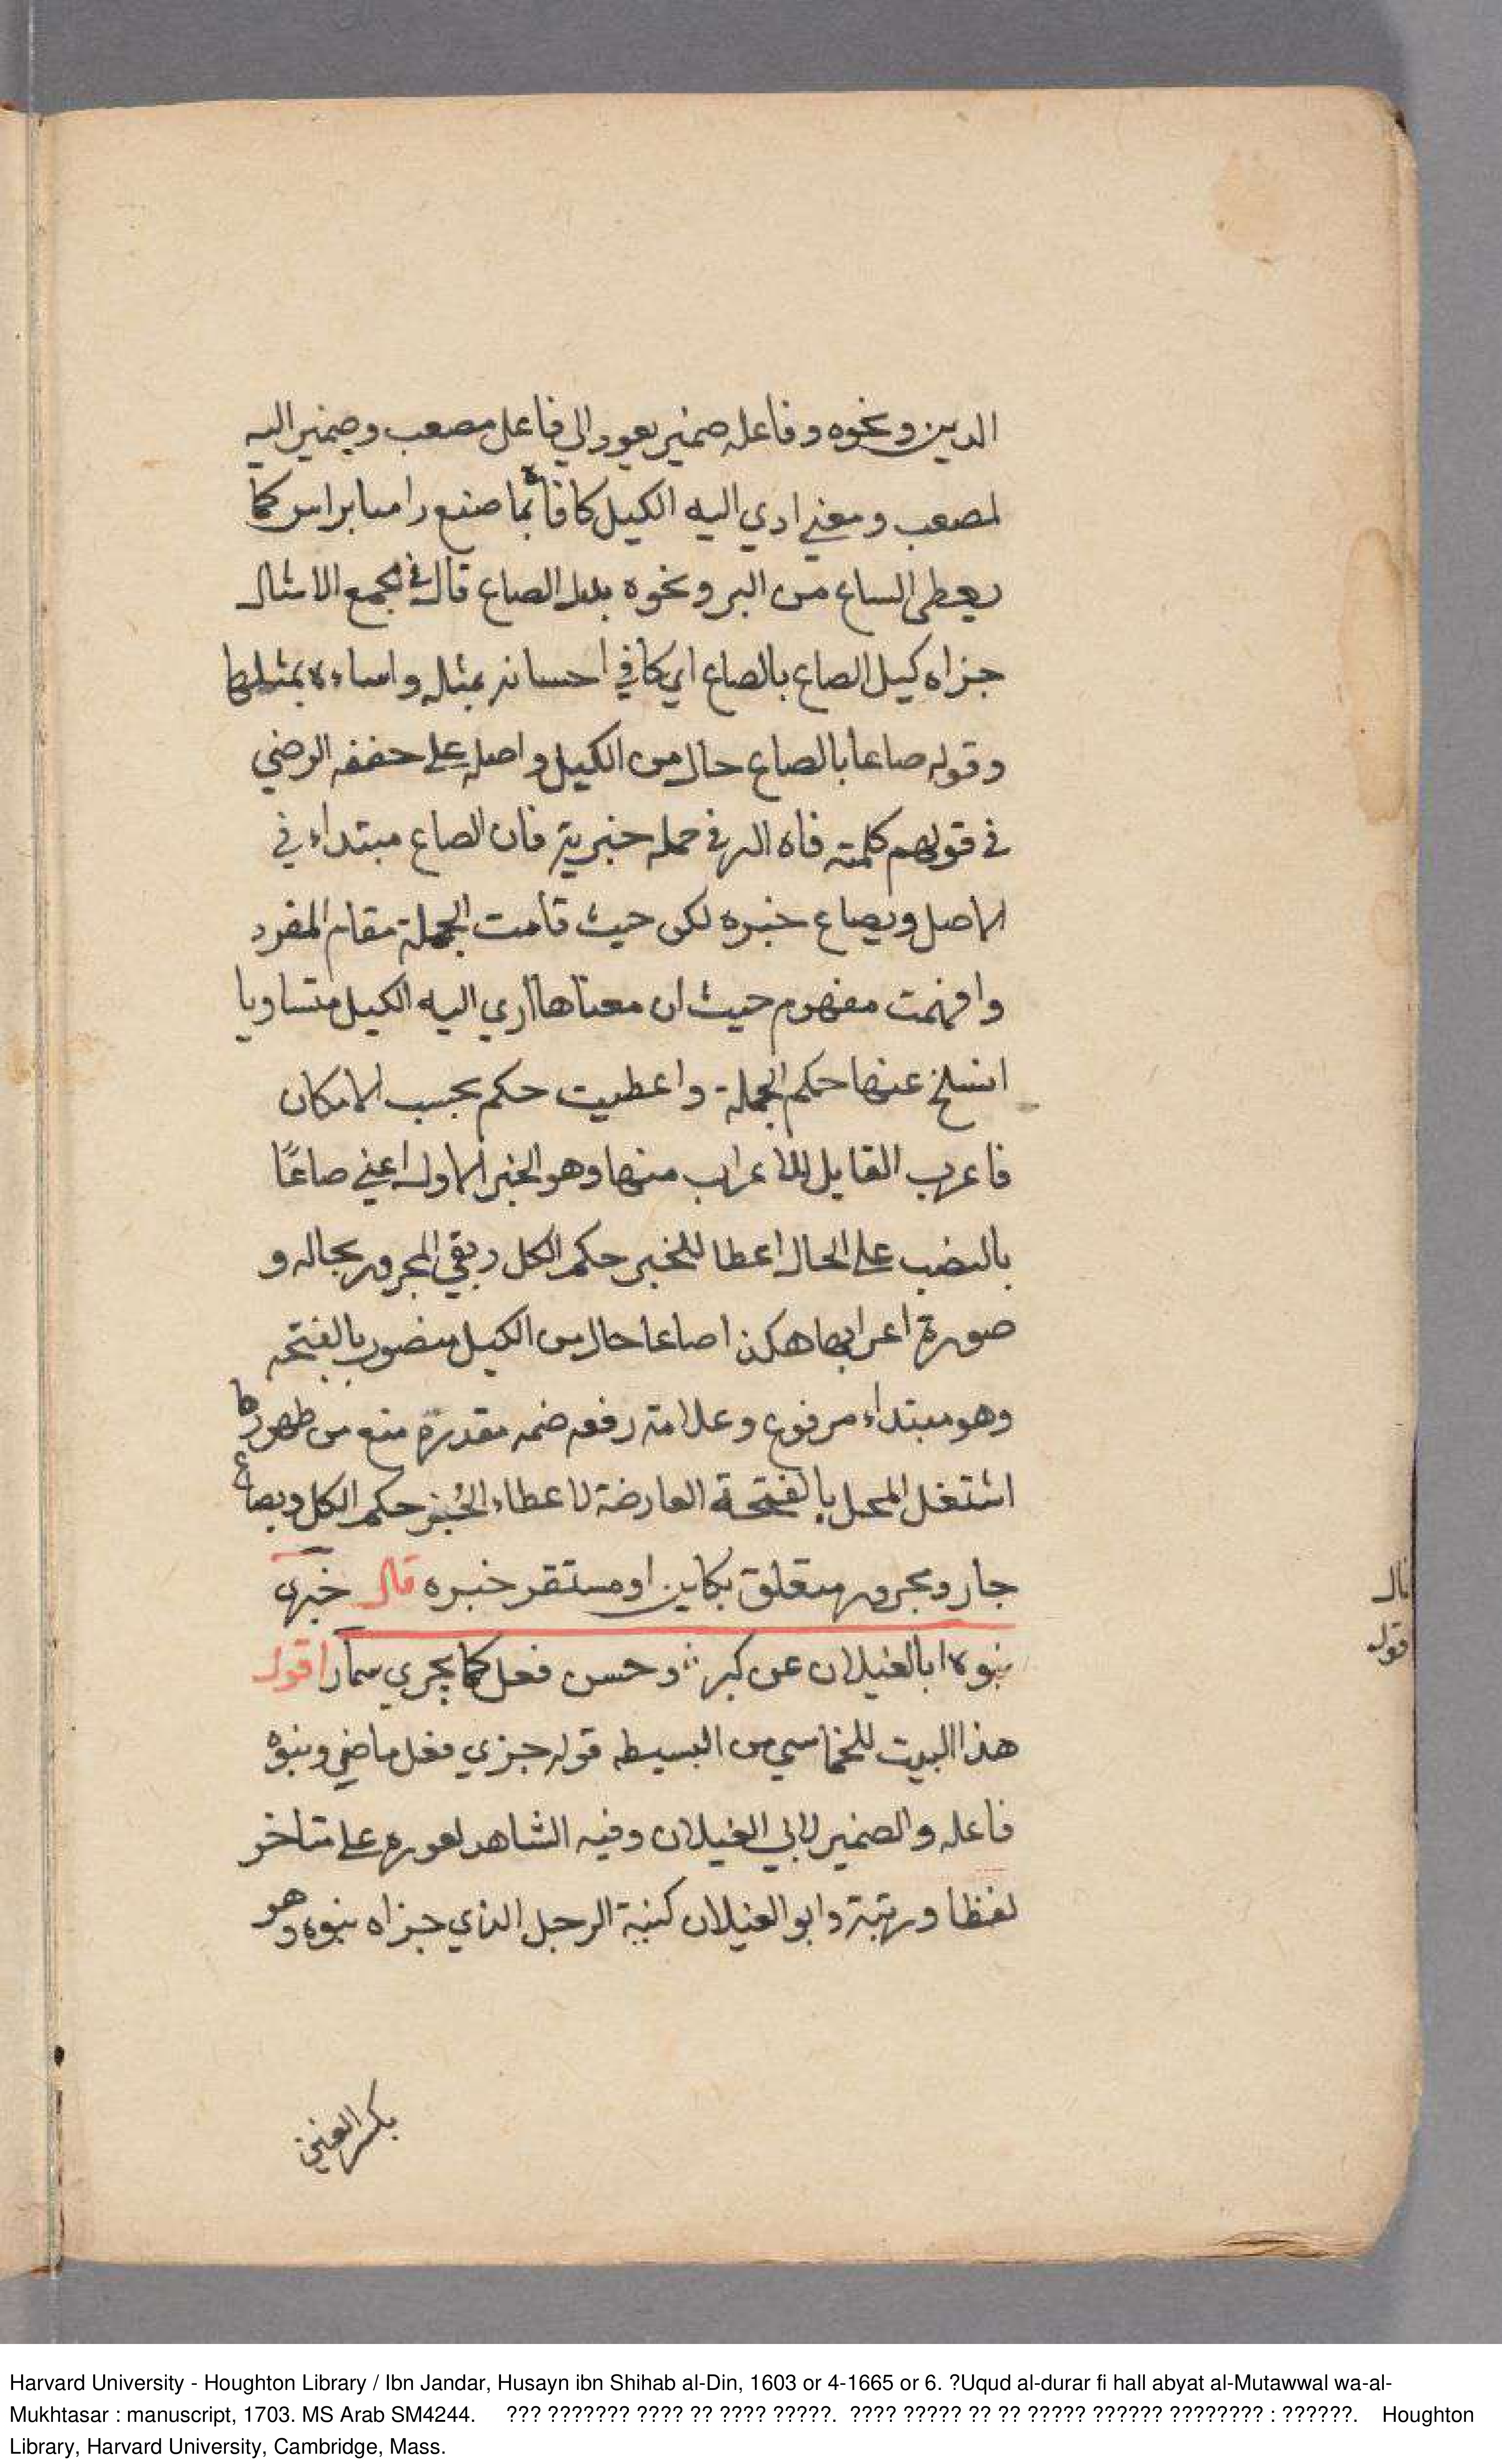 الدين ونحوه وفاعله ضمير يعود الي فاعل مصعب وضمير اليه
لمصعب ومعني ادي اليه الكيل كافأه بما صنع راسا براس كما
يعطى الساع من البر ونحوه بدل الصاع قال في مجمع الامثال
جزاه كيل الصاع بالصاع اي كافي احسانه بمثله واساءة بمثلها
وقوله صاعا بالصاع حال من الكيل واصله علي حققه الرضي
في قولهم كلمته فاه الي في جمله خبرية فان الصاع مبتداء في
الاصل وبصاع خبره لكن حيث قامت الجملة مقام المفرد
وافهمت مفهوم حيث ان معناها ادي اليه الكيل متساويا
انسلخ عنها حكم الجملة واعطيت حكم بحسب الامكان
فاعرب القابل للاعراب منها وهو الخبر الاول اعني صاعًا
بالنصب علي الحال اعطا للخبر حكم الكل وبقي المجرور بحاله و
صورة اعرابها هكذا صاعا حال من الكيل منصوب بالفتحه
وهو مبتداء مرفوع وعلامة رفعه ضمه مقدرة منع من ظهورها
اشتغل المحل بالفتحة العارضة لاعطاء الخبز حكم الكل وبصاع
جار ومجرور متعلق بكاين او مستقر خبره قال جزى
بنوه ابا الغيلان عن كبر وحسن فعل كما يجري سمار اقول
هذا البيت للخماسي من البسيطه قوله جزي فعل ماضي وبنوه
فاعله والضمير لابي الغيلان وفيه الشاهد لعوده علي متاخر
لفظا ورتبة وابو الغيلان كنية الرجل الذي جزاه بنوه وهو
بكسر الغين
قال
قوله
Harvard University - Houghton Library / Ibn Jandar, Husayn ibn Shihab al-Din, 1603 or 4-1665 or 6. ?Uqud al-durar fi hall abyat al-Mutawwal wa-al-
Mukhtasar : manuscript, 1703. MS Arab SM4244. ??? ??????? ???? ?? ???? ?????. ???? ????? ?? ?? ????? ?????? ???????? : ??????. Houghton
Library, Harvard University, Cambridge, Mass.